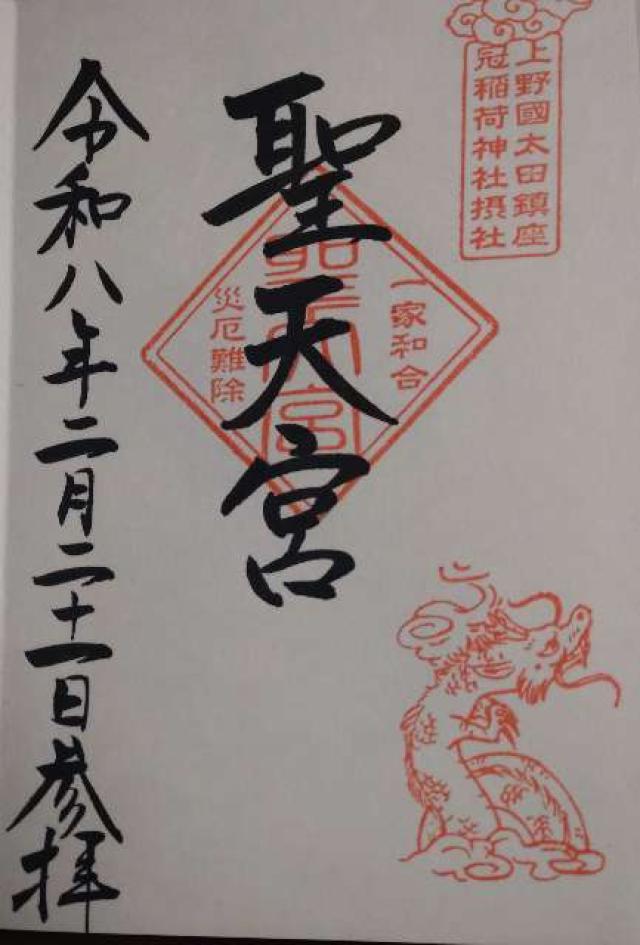 上野國太田鎮座
冠稲荷神社摂社
一家和合
聖天宮
聖天宮
災厄難除
令和八年二月二十一日参拝